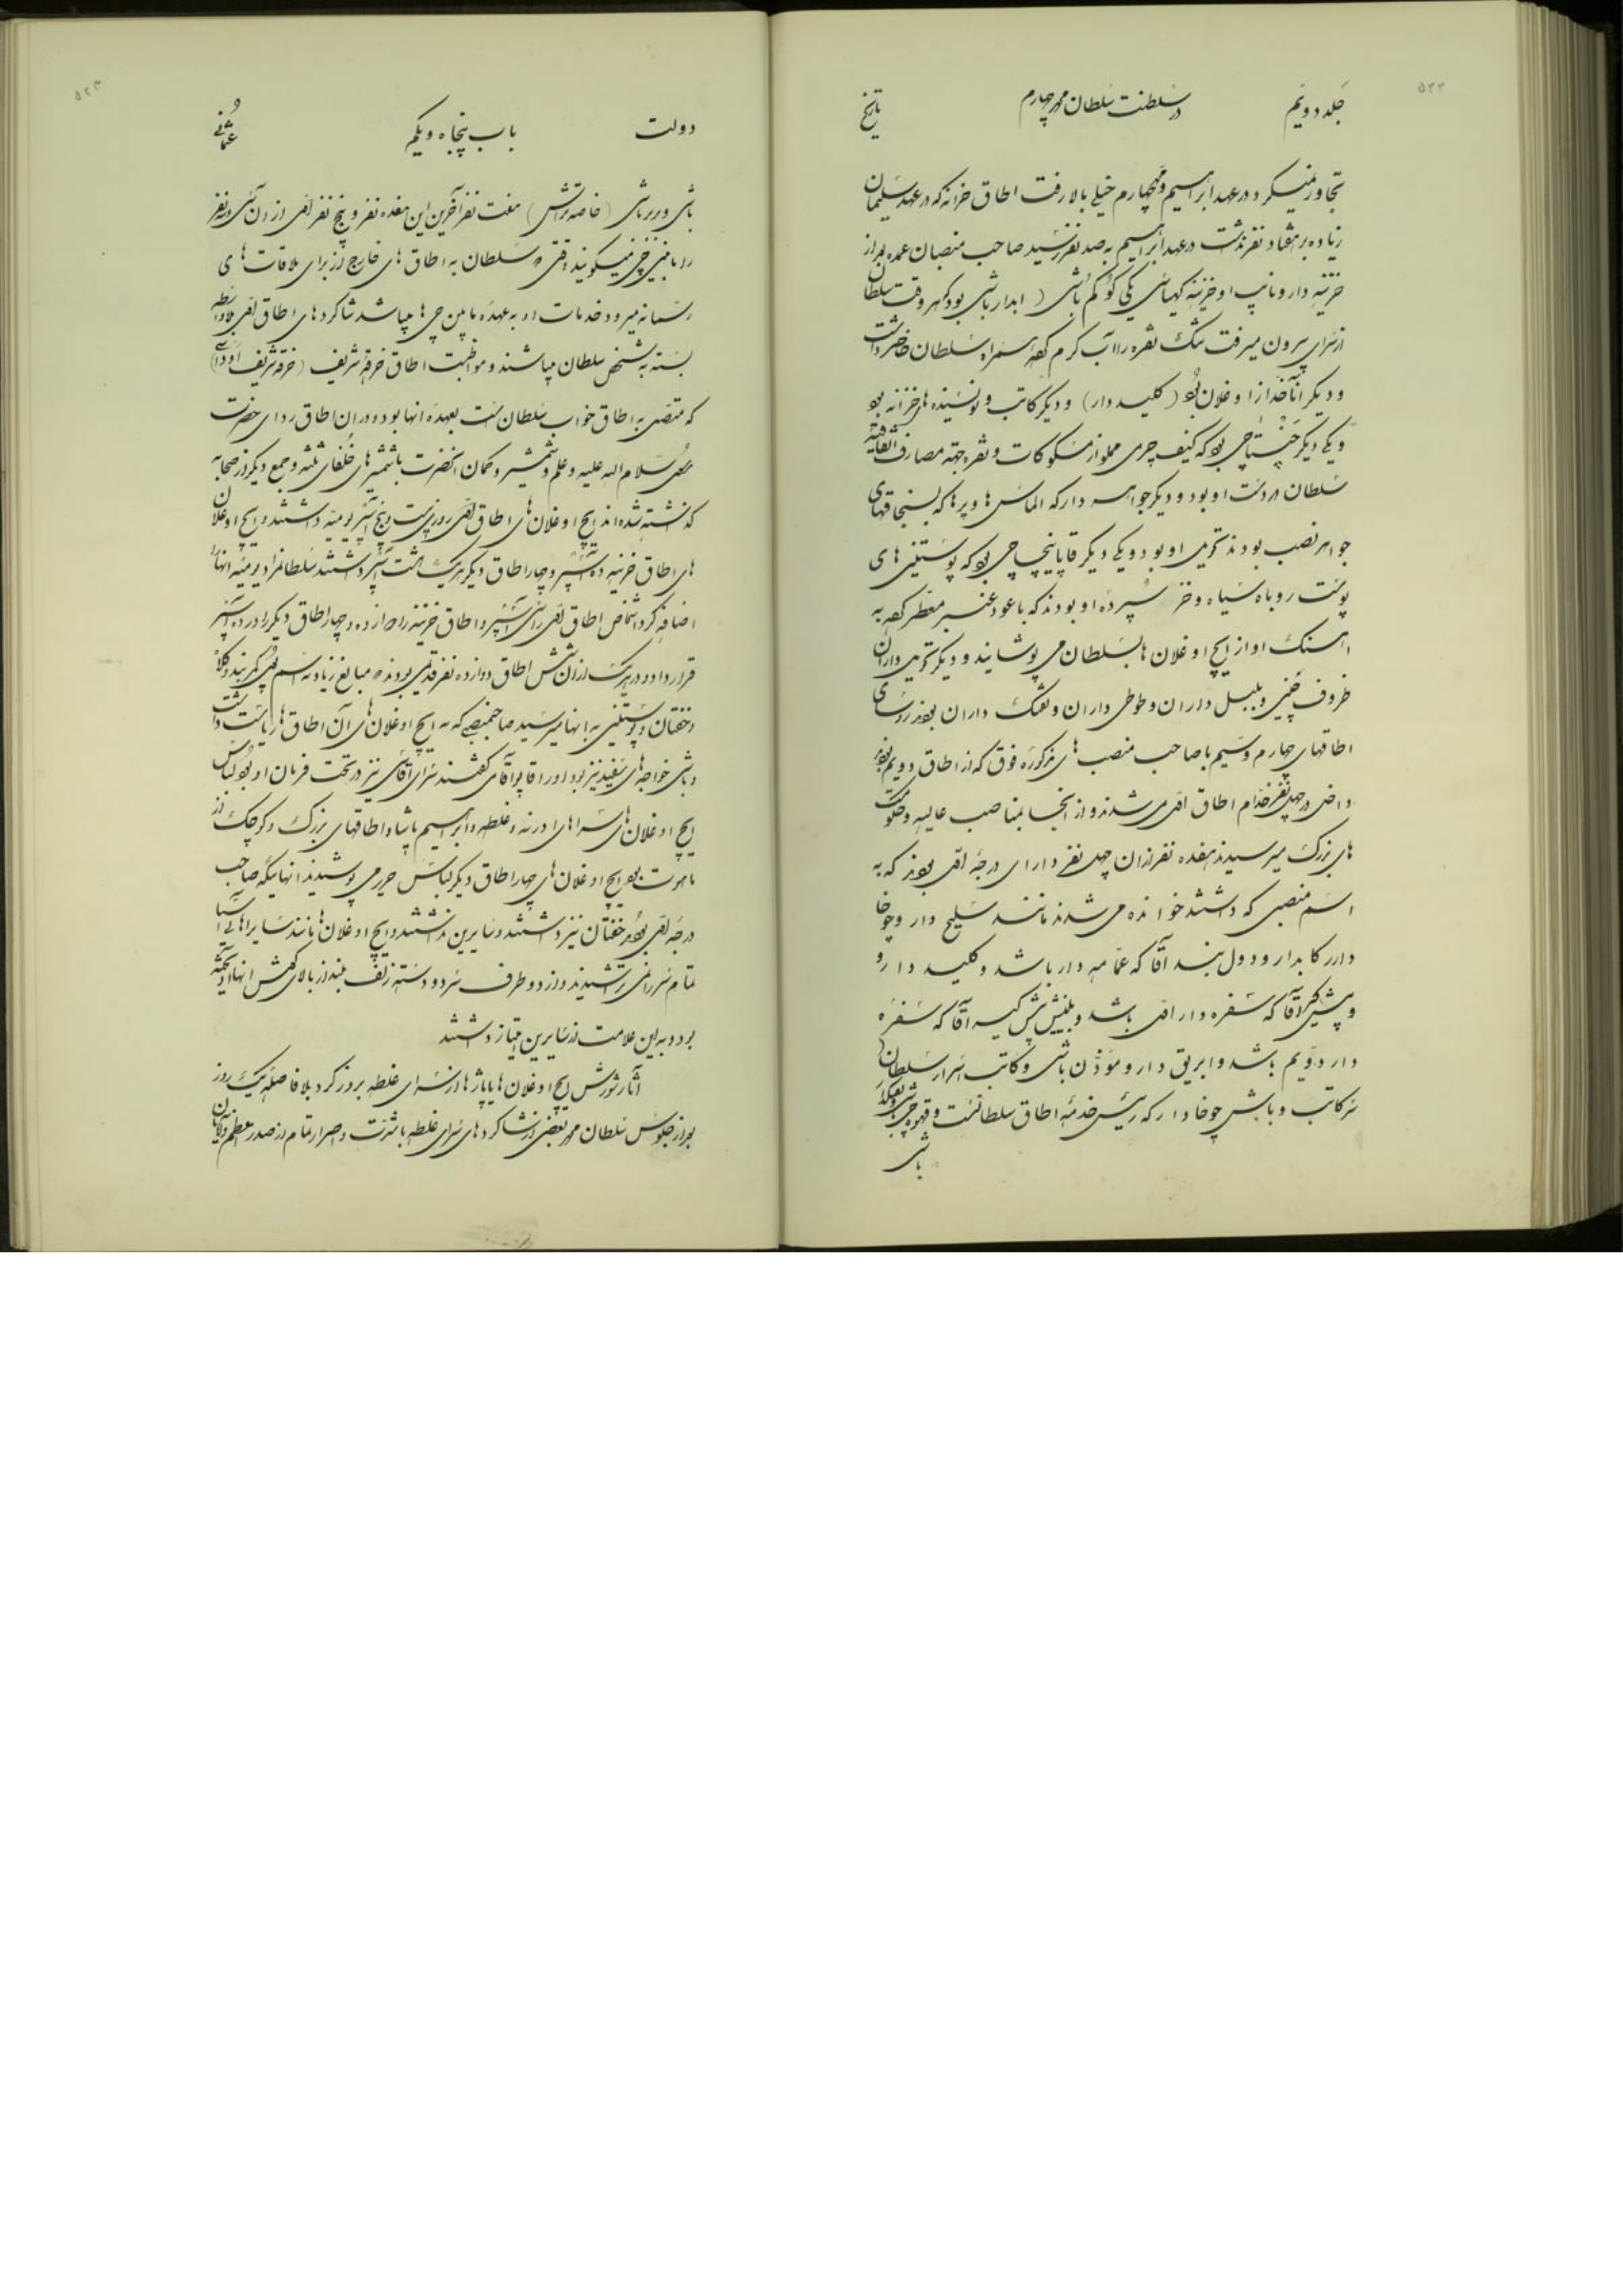 ۵۲۲
جلد دویم
در سلطنت سلطان محمد چهارم
تاریخ
تجاوز نمیکرد در عهد ابراهیم و محمد چهارم خیلی بالا رفت اطاق خزانه که در عهد سلیمان
زیاده بر هفتاد نفر نداشت در عهد ابراهیم به صد نفر رسید صاحب منصبان عمده بعد از
خزینه دار و نایب او خزینه کهیاسی یکی کوکم باشی (ابدار باشی بود که هر وقت سلطان
از سرای بیرون میرفت تنک نقره را آب گرم کرده همراه سلطان حاضر داشت
و دیگر اناختار اوغلان بود (کلید دار) و دیگر کاتب و نویسنده های خزانه بود
و یکی دیگر چنتاجی بود که کیف چرمی مملو از مسکوکات و نقره جهة مصارف اتفاقیه
سلطان در دست او بود و دیگر جواهر دار که الماس ها و پرها که بسنجاقهای
جواهر نصب بودند تحویل او بود و یکی دیگر قاپانیچه چی بود که پوستین های
پوست روباه سیاه و خز سپرده او بودند که با عود عنبر معطر کرده به
اهنک او از ایچ اوغلان ها بسلطان می پوشانید و دیگر تحویل داران
ظروف چینی و بلبل داران و طوطی داران و تفنک داران بودند روسای
اطاقهای چهارم و سیم با صاحب منصب های مذکوره فوق که از اطاق دویم بودند
داخل در چهل نفر خدام اطاق اول می شدند و از آنجا بمناصب عالیه و حکومت
های بزرگ میرسیدند هفده نفر از ان چهل نفر دارای درجه اول بودند که به
اسم منصبی که داشتند خوانده می شدند مانند سلیح دار و چوخا
دار رکابدار و دول بند اقا که عمامه دار باشد و کلید دار و
و پیشکیر آقا که سفره دار اول باشد و بینش پیش کیر آقا که سفره
دار دویم باشد و ابریق دار و موذن باشی و کاتب اسرار سلطان
سر کاتب و باش چوخا دار که رئیس خدمه اطاق سلطانست و قهوه چی باشی و تفنکد
باشی
۵۲۳
دولت
باب پنجاه و یکم
عثمانی
باشی و بربر باشی (خاصه تراش) هفت نفر آخرین این هفده نفر و پنج نفر اول از ان سی و نه نفر
را مابین چی میگویند وقتی که سلطان به اطاق های خارج از برای ملاقات های
رسمانه میرود خدمات او به عهده مابین چی ها میباشد شاگرد های اطاق اول بلاواسطه
بسته به شخص سلطان میباشند و مواظبت اطاق خرقه شریف (خرقه شریف اوداسی)
که متصل به اطاق خواب سلطان است بعهده انها بود و در ان اطاق ردای حضرت
رسول سلام الله علیه و علم و شمشیر و کمان انحضرت با شمشیر های خلفای ثلثه و جمع دیگر از صحابه
گذشته شده اند ایچ اوغلان های اطاق اول روزی بیست و پنج آسپر یومیه داشتند و ایچ اوغلان
های اطاق خزینه ده آسپر و چهار اطاق دیگر هر یک هشت آسپر داشتند سلطان مراد یومیه انها را
اضافه کرد اشخاص اطاق اول را سی آسپر و اطاق خزینه را دوازده و چهار اطاق دیگر را در ده آسپر
قرار داد و در هر یک از ان شش اطاق دوازده نفر قدیمی بودند که مبالغ زیاد به اسم پول کمربند و کلاه
و خفتان و پوستین به انها میرسید صاحبمنصبی که به ایچ اوغلان های آن اطاق ها ریاست داشت
و باشی خواجه های سفید نیز بود او را قاپو آقاسی گفتند سرای آقاسی نیز در تحت فرمان او بود لباس
ایچ اوغلان های سراهای ادرنه و غلطه و ابراهیم پاشا و اطاقهای بزرگ و کوچک از
ماهوت بود ایچ اوغلان های چهار اطاق دیگر لباس حریر می پوشیدند انهائیکه صاحب
درجه اول بودند خفتان نیز داشتند و سایرین نداشتند و ایچ اوغلان ها مانند سایر اهالی آسیا
تمام سر را نمی تراشیدند و از دو طرف سر دو دسته زلف بلند از بالای گوش انها آویخته
بود و به این علامت از سایرین امتیاز داشتند
آثار شورش ایچ اوغلان ها یا پاژها از سرای غلطه بروز کرد بلا فاصله یک روز
بعد از جلوس سلطان محمد بعضی از شاگرد های سرای غلطه با شدت و اصرار تمام از صدر اعظم و آقایان